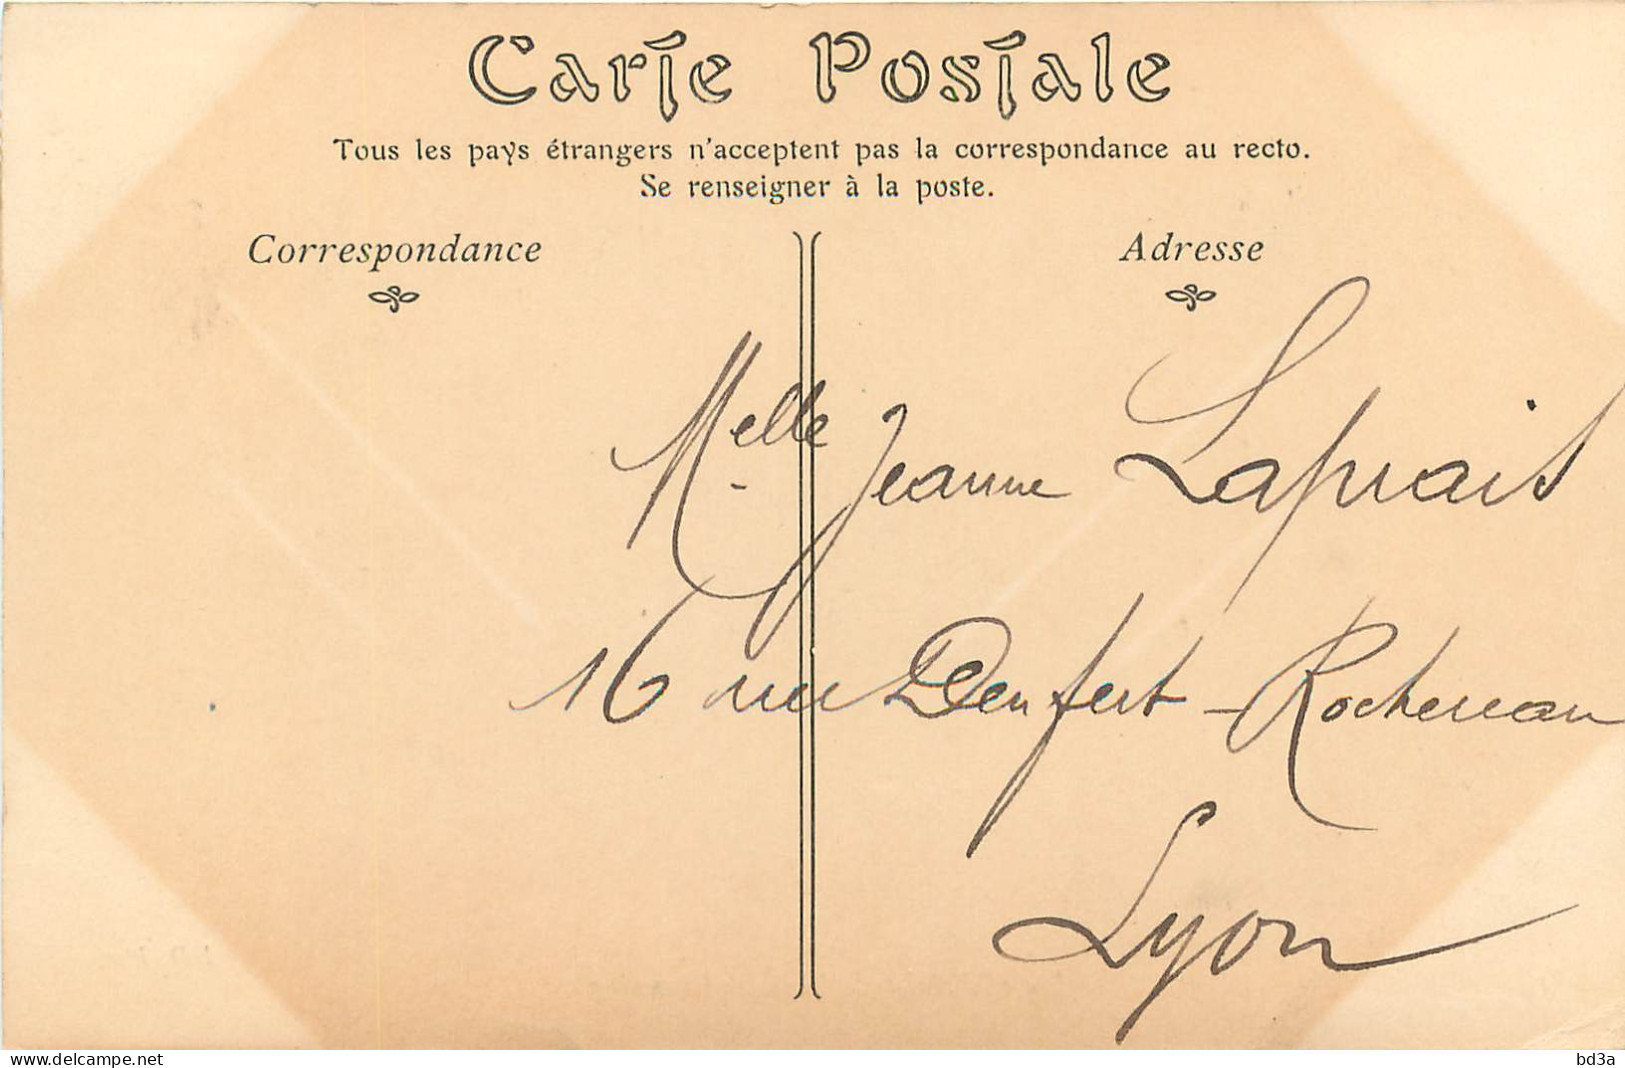 Carte Postale
Tous les pays étrangers n'acceptent pas la correspondance au recto.
Se renseigner à la poste.
Correspondance
Adresse
Melle Jeanne Laprais
16 rue Denfert-Rochereau
Lyon
www.delcampe.net
bd3a